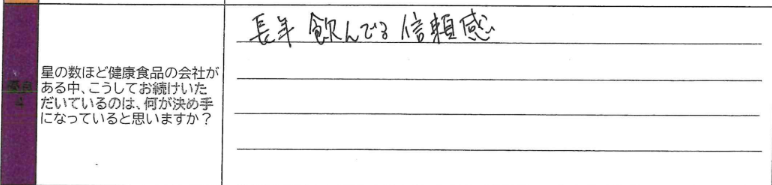 長年飲んでる信頼感
4
星の数ほど健康食品の会社が
ある中、こうしてお続けいた
だいているのは、何が決め手
になっていると思いますか？